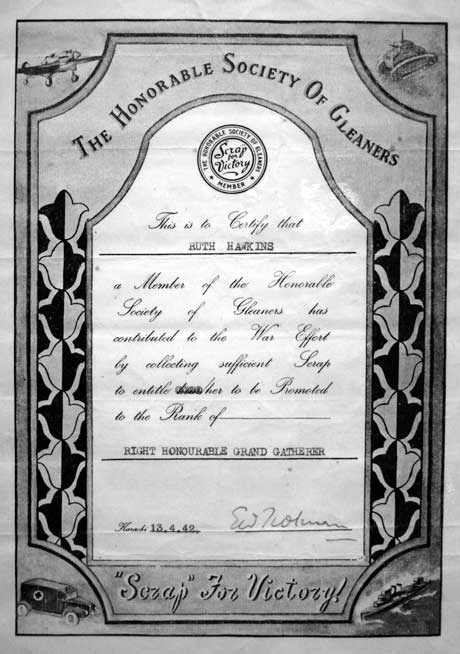 THE HONORABLE SOCIETY OF GLEANERS
THE HONORABLE SOCIETY OF GLEANERS
Scrap
for
Victory
MEMBER
This is to Certify that
RUTH HAWKINS
a Member of the Honorable
Society of Gleaners has
contributed to the War Effort
by collecting sufficient Scrap
to entitle her to be Promoted
to the Rank of
RIGHT HONOURABLE GRAND GATHERER
Karachi 13.4.42
"Scrap" For Victory!